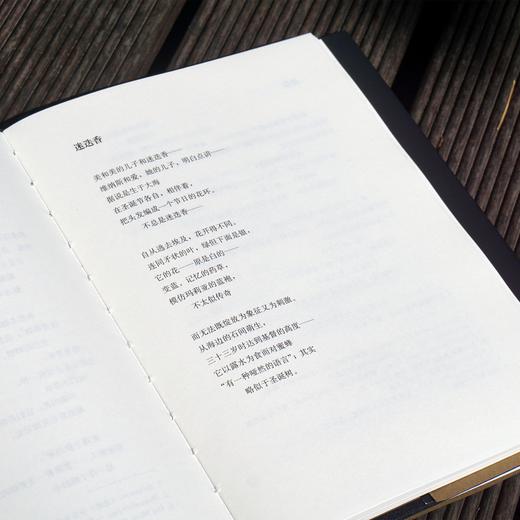 迷迭香
美和美的儿子和迷迭香——
维纳斯和爱,她的儿子,明白点讲——
据说是生于大海
在圣诞节各自,相伴着,
把头发编成一个节日的花环。
不总是迷迭香——
自从逃去埃及,花开得不同。
连同矛状的叶,绿但下面是银,
它的花——原是白的——
变蓝。记忆的药草,
模仿玛利亚的蓝袍,
不太似传奇
而无法既绽放为象征又为刺激。
从海边的石间萌生,
三十三岁时达到基督的高度——
它以露水为食而对蜜蜂
“有一种哑然的语言”;其实
略似于圣诞树。